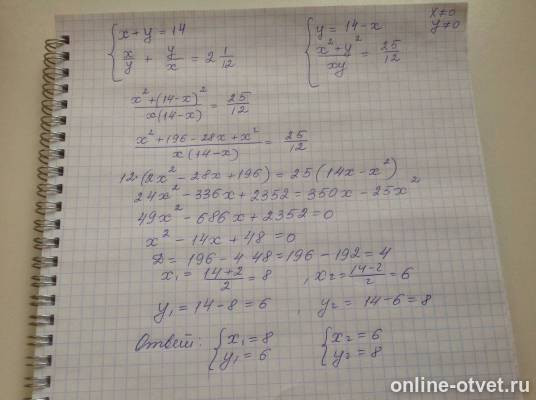 x + y = 14
x/y + y/x = 2 1/12
y = 14 - x
(x² + y²)/(xy) = 25/12
x ≠ 0
y ≠ 0
(x² + (14 - x)²)/(x(14 - x)) = 25/12
(x² + 196 - 28x + x²)/(x(14 - x)) = 25/12
12·(2x² - 28x + 196) = 25(14x - x²)
24x² - 336x + 2352 = 350x - 25x²
49x² - 686x + 2352 = 0
x² - 14x + 48 = 0
D = 196 - 4·48 = 196 - 192 = 4
x₁ = (14 + 2)/2 = 8 , x₂ = (14 - 2)/2 = 6
y₁ = 14 - 8 = 6 , y₂ = 14 - 6 = 8
Ответ: { x₁ = 8 { x₂ = 6
y₁ = 6 y₂ = 8
online-otvet.ru